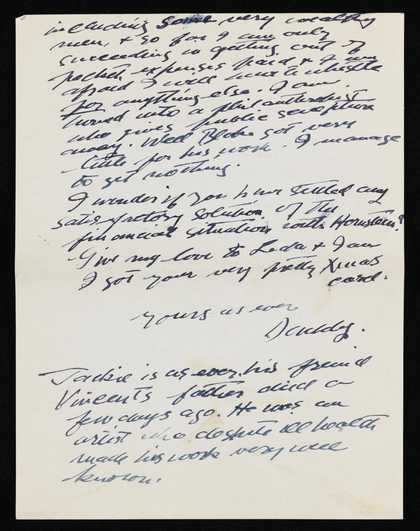 including some very wealthy
men, & so far I am only
succeeding in getting out of
pocket expenses paid & I am
afraid I will have to whistle
for anything else. I am
turned into a philanthropist
who gives public sculpture
away. Well Blake got very
little for his work. I manage
to get nothing.
I wonder if you have settled any
satisfactory solution of the
financial situation with Hornstein?
Give my love to Leda & Ian
I got your very pretty Xmas
card.
Yours as ever
Daddy.
is as ever, his friend
Vincents father died a
few days ago. He was an
artist who despite ill health
made his work very well
known.